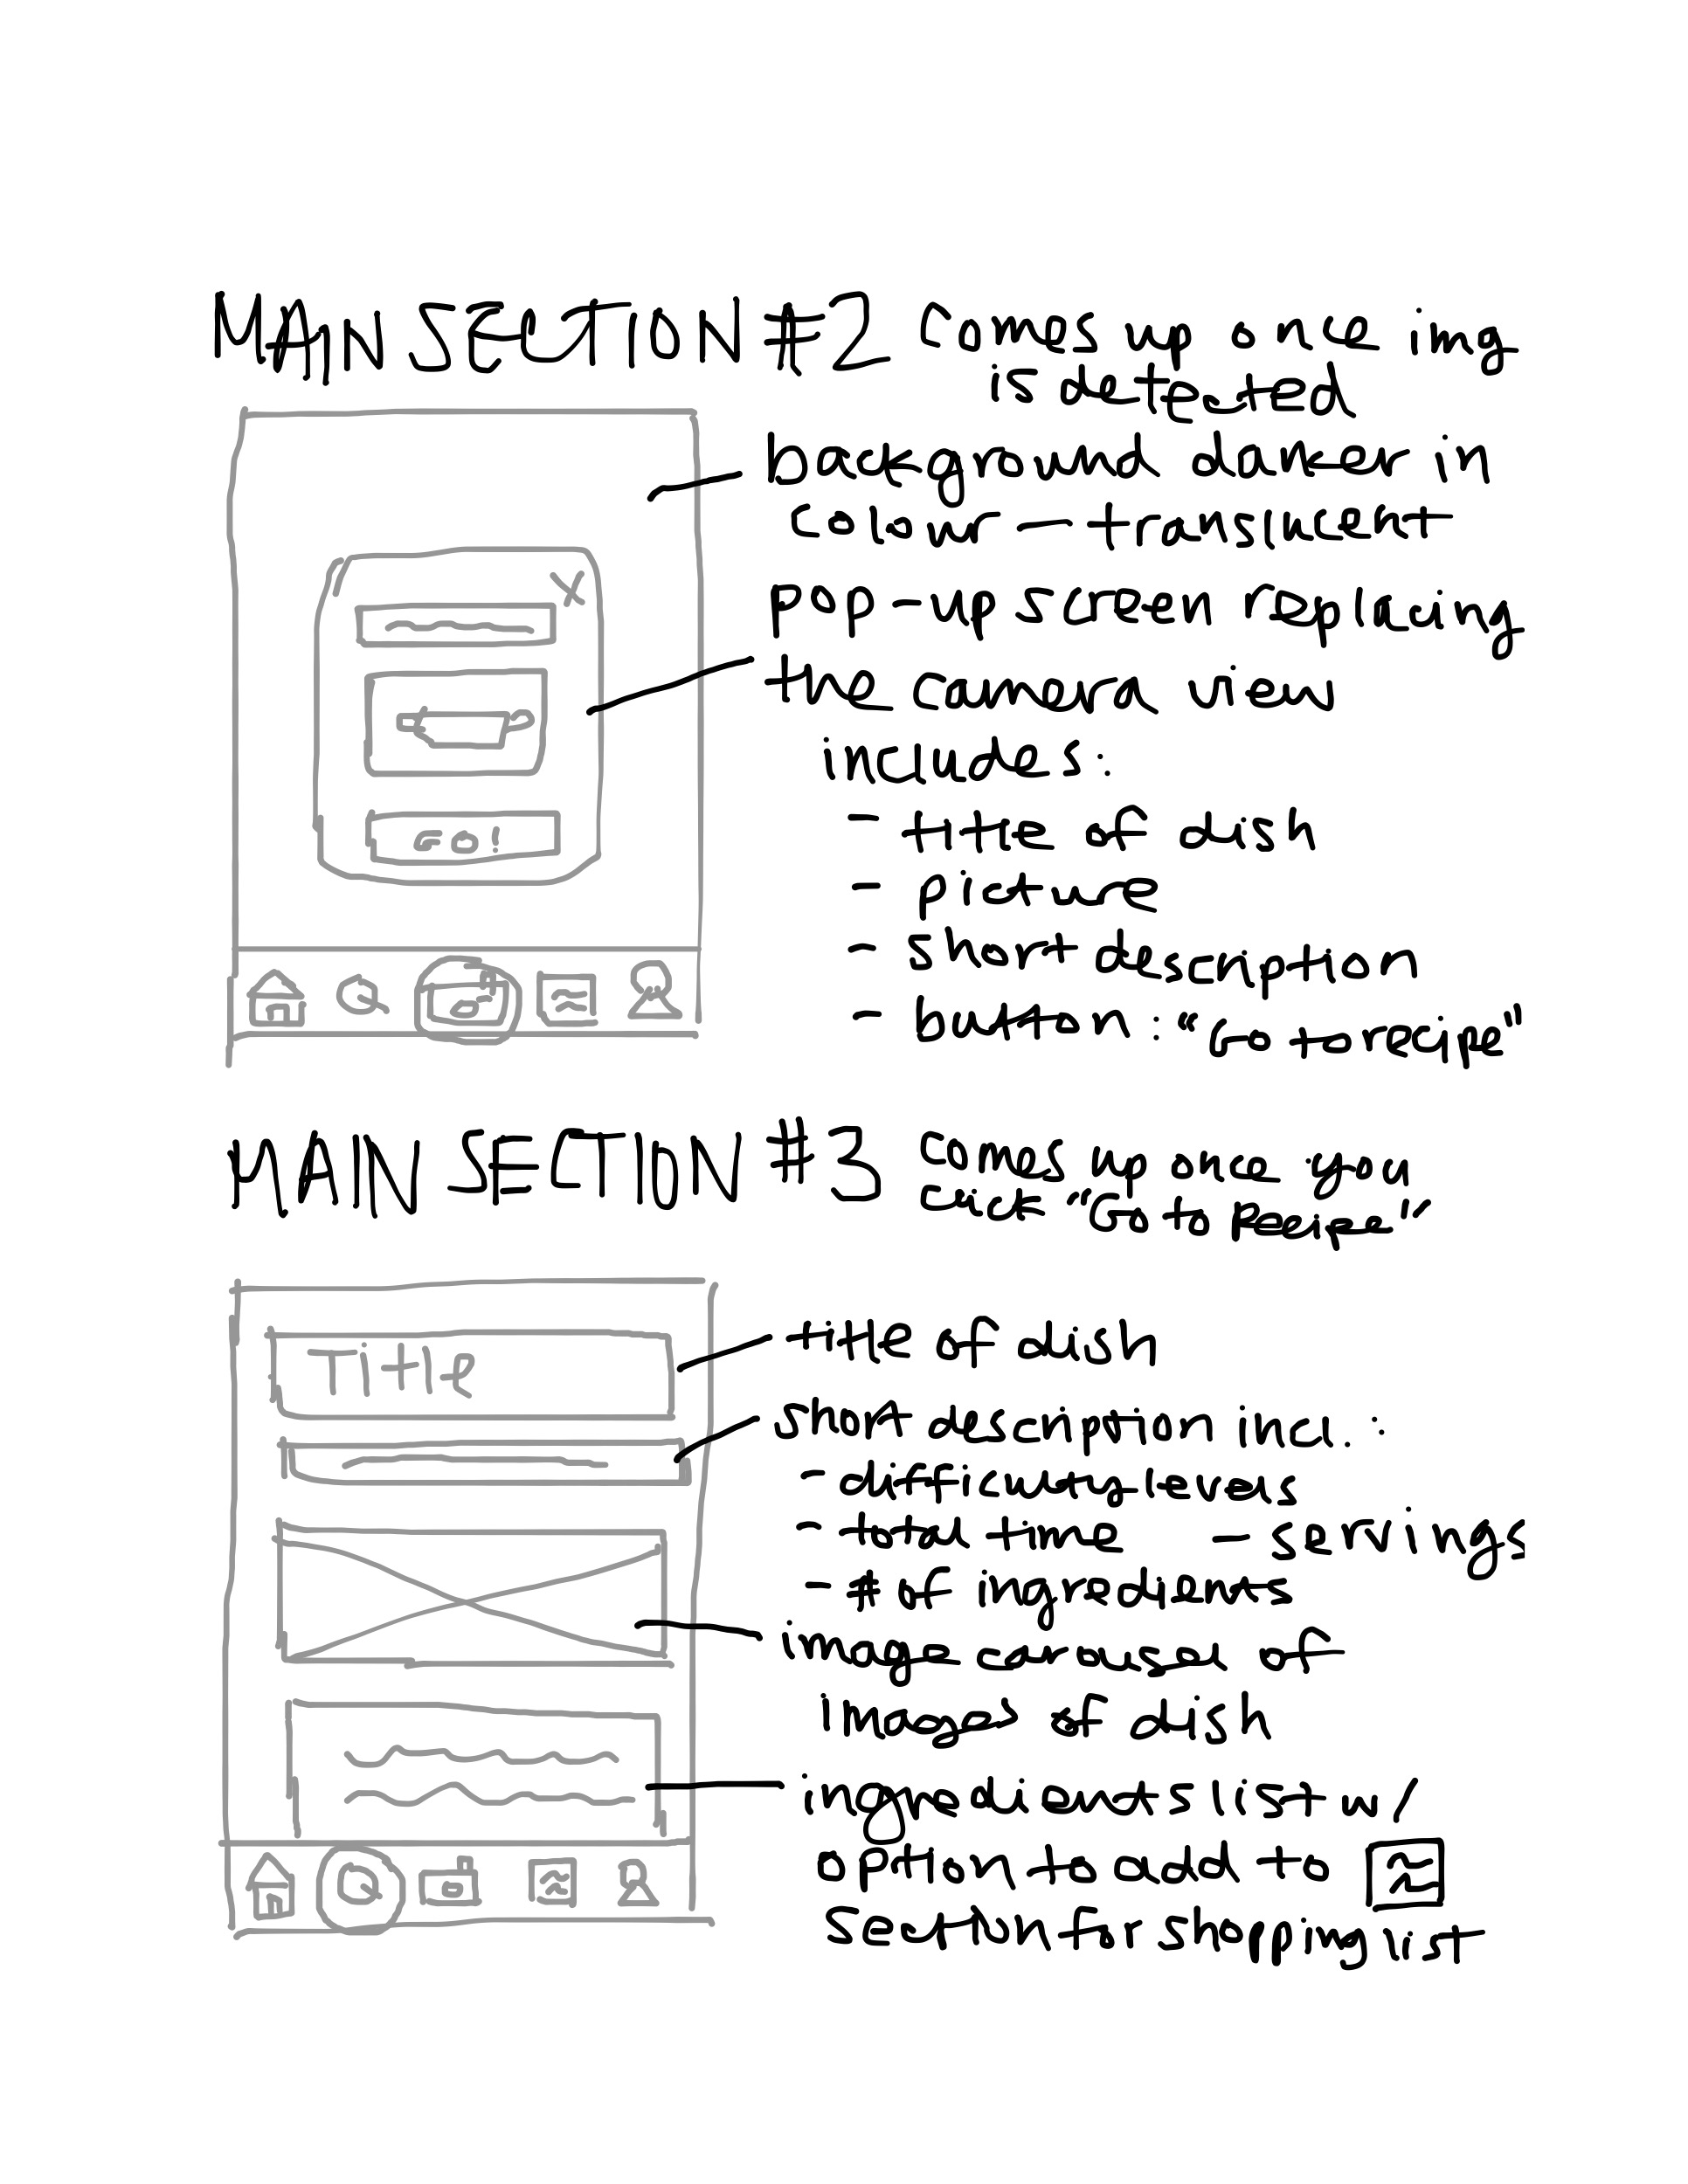 MAIN SECTION #2 comes up once img
is detected
background darker in
colour — translucent
pop-up screen replacing
the camera view
includes:
- title of dish
- picture
- short description
- button: "Go to recipe"
X
GO!
MAIN SECTION #3 comes up once you
click "Go to Recipe"
Title
title of dish
short description incl. :
- difficulty levels
- total time - servings
- # of ingredients
image carousel of
images of dish
ingredients list w/
option to add to
section for shopping list